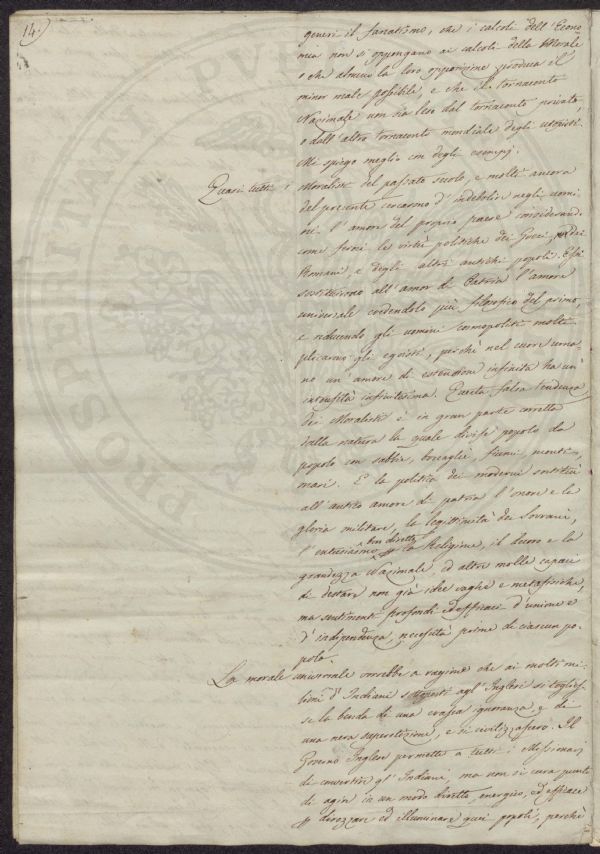 14.
generi il fanatismo, che i calcoli dell'Econo-
mia non si oppongano ai calcoli della Morale
o che almeno la loro opposizione produca il
minor male possibile, e che il tornaconto
Nazionale non sia leso dal tornaconto privato,
o dall'altro tornaconto mondiale degli utopisti.
Mi spiego meglio con degli esempj.
Quasi tutti i Moralisti del passato secolo, e molti ancora
del presente cercarono d'indebolir negli uomi-
ni l'amore del proprio paese considerando
come feroci le virtù politiche dei Greci, dei
Romani e degli altri antichi popoli. Essi
sostituirono all'amor di Patria l'amore
universale credendolo più filosofico del primo,
e riducendo gli uomini cosmopoliti molti-
plicarono gli egoisti, perchè nel cuore uma-
no un'amore di estensione infinita ha un'
intensità infinitesima. Questa falsa tendenza
dei Moralisti è in gran parte corretta
dalla natura la quale divise popolo da
popolo con sabbie, boscaglie, fiumi, monti,
mari. E la politica dei moderni sostituì
all'antico amore di patria l'onore e la
gloria militare, la legittimità dei Sovrani,
l'entusiasmo ben diretto p la Religione, il decoro e la
grandezza Nazionale ed altre molle capaci
di destare non già idee vaghe e metafisiche,
ma sentimenti profondi ed efficaci d'unione e
d'independenza, necessità prime di ciascun po-
polo.
La morale universale vorrebbe a ragione che ai molti mi-
lioni d'Indiani sottoposti agl'Inglesi si toglies-
se la benda di una crassa ignoranza, e di
una nera superstizione, e si civilizzassero. Il
Governo Inglese permette a tutti i Missionarj
di convertire gl'Indiani, ma non si cura punto
di agire in un modo diretto energico, ed efficace
p dirozzare ed illuminare quei popoli, perchè